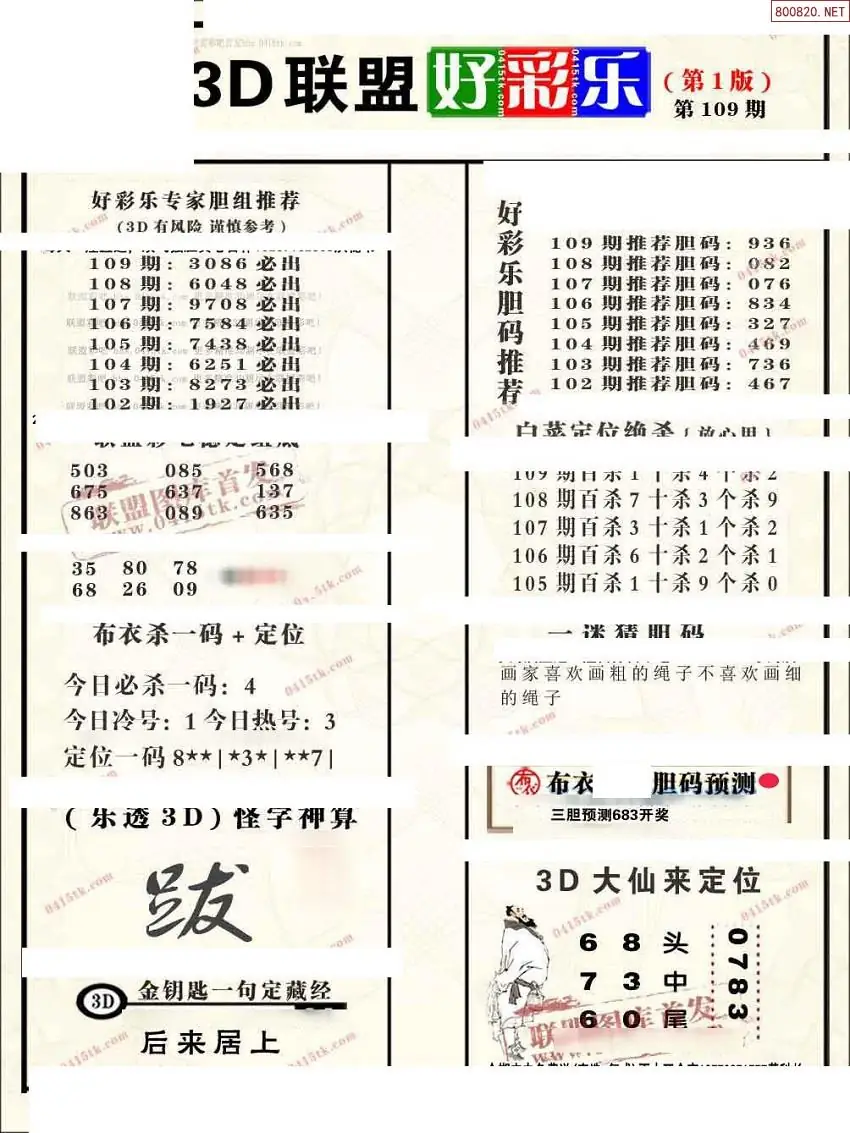 800820.NET
3D联盟好彩乐
(第1版)
第109期
好彩乐专家胆组推荐
(3D有风险 谨慎参考)
109期: 3086必出
108期: 6048必出
107期: 9708必出
106期: 7584必出
105期: 7438必出
104期: 6251必出
103期: 8273必出
102期: 1927必出
503 085 568
675 637 137
863 089 635
联盟图库首发
www.0415tk.com
35 80 78
68 26 09
布衣杀一码+定位
今日必杀一码: 4
今日冷号: 1 今日热号: 3
定位一码 8**|*3*|**7|
(乐透3D)怪字神算
跋
3D 金钥匙一句定藏经
后来居上
好彩乐胆码推荐
109期推荐胆码: 936
108期推荐胆码: 082
107期推荐胆码: 076
106期推荐胆码: 834
105期推荐胆码: 327
104期推荐胆码: 469
103期推荐胆码: 736
102期推荐胆码: 467
白菜定位绝杀{放心用}
109期百杀1十杀4个杀2
108期百杀7十杀3个杀9
107期百杀3十杀1个杀2
106期百杀6十杀2个杀1
105期百杀1十杀9个杀0
一迷猜胆码
画家喜欢画粗的绳子不喜欢画细
的绳子
布衣 胆码预测
三胆预测683开奖
3D大仙来定位
6 8 头
7 3 中
6 0 尾
0783
联盟图库首发
0415tk.com